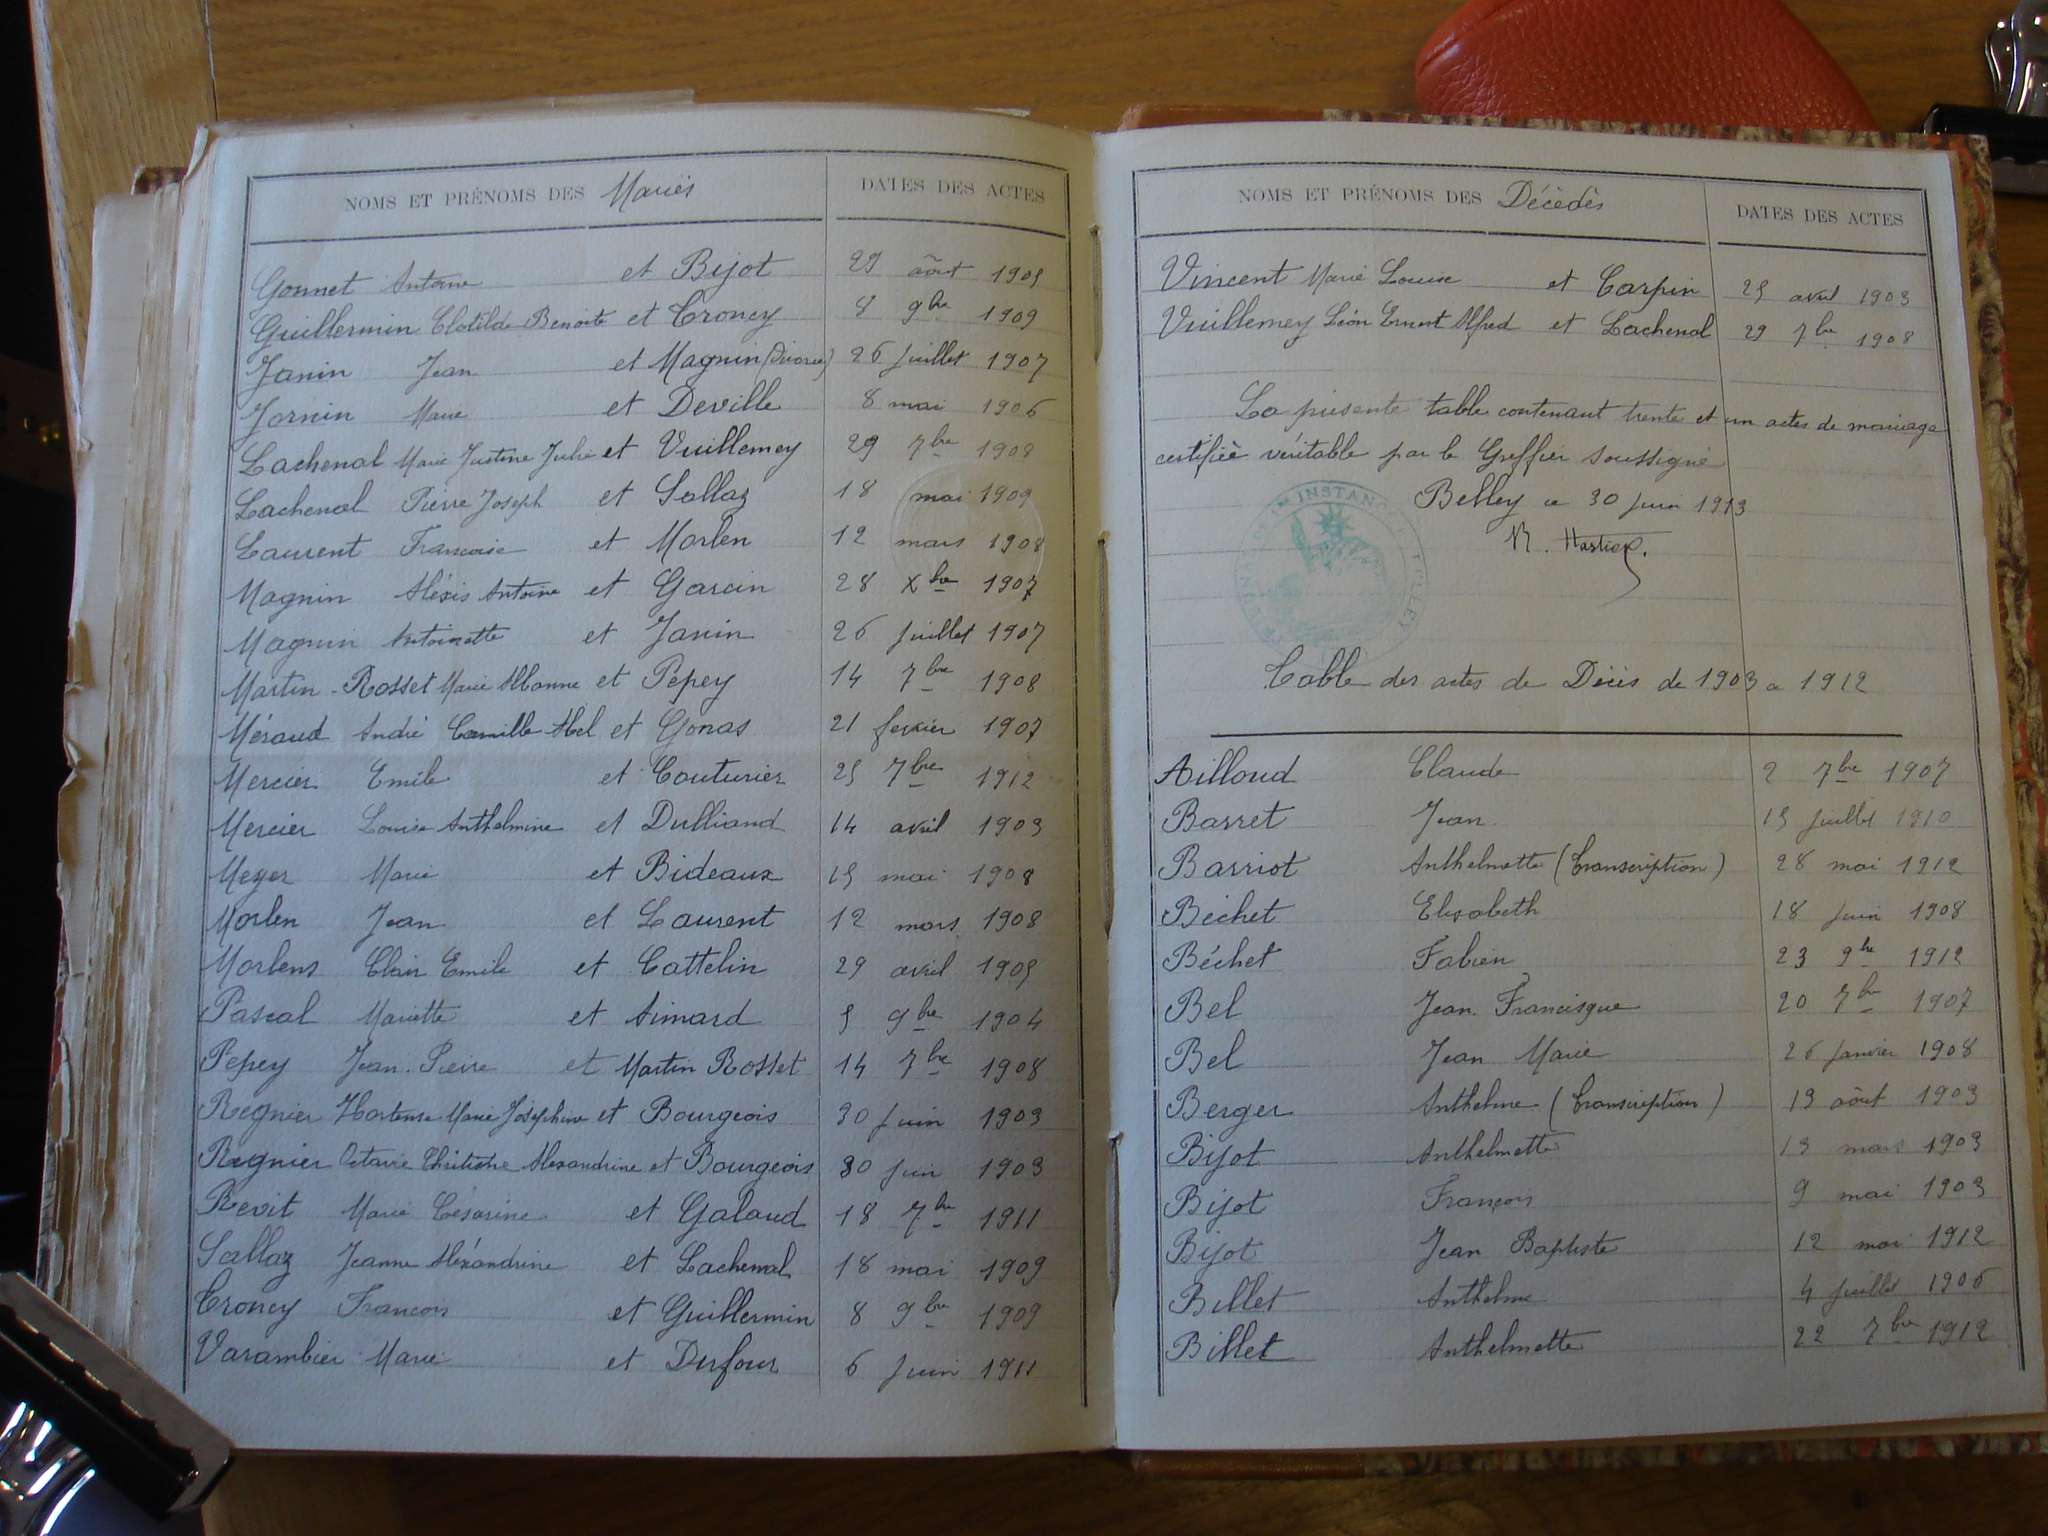 NOMS ET PRÉNOMS DES Mariés DATES DES ACTES
Gonnet Antoine et Bijot 29 août 1905
Guillermin Clotilde Benoite et Troncy 8 9bre 1909
Janin Jean et Magnin (Divorce) 26 Juillet 1907
Jornin Marie et Deville 8 mai 1906
Lachenal Marie Justine Julie et Vuillemey 29 7bre 1908
Lachenal Pierre Joseph et Sallaz 18 mai 1909
Laurent Francoise et Morlen 12 mars 1908
Magnin Aléxis Antoine et Garcin 28 Xbre 1907
Magnin Antoinette et Janin 26 Juillet 1907
Martin-Rosset Marie Albanne et Pepey 14 7bre 1908
Méraud André Camille Abel et Gonas 21 fevrier 1907
Mercier Emile et Couturier 25 7bre 1912
Mercier Louise Anthelmine et Dulliand 14 avril 1903
Meyer Marie et Bideaux 15 mai 1908
Morlen Jean et Laurent 12 mars 1908
Morlens Clair Emile et Cattelin 29 avril 1905
Pascal Mariette et Aimard 5 9bre 1904
Pepey Jean-Pierre et Martin Rosset 14 7bre 1908
Regnier Hortense Marie Joséphine et Bourgeois 30 Juin 1903
Regnier Octavie Alexandrine et Bourgeois 30 Juin 1903
Revit Marie Césarine et Galaud 18 7bre 1911
Sallaz Jeanne Aléxandrine et Lachenal 18 mai 1909
Troncy Francois et Guillermin 8 9bre 1909
Varambier Marie et Dufour 6 Juin 1911
NOMS ET PRÉNOMS DES Décédés DATES DES ACTES
Vincent Marie Louise et Carpin 25 avril 1903
Vuillemey Léon Ernest Alfred et Lachenal 29 7bre 1908
La présente table contenant trente et un actes de mariage
certifiée véritable par le Greffier soussigné
Belley ce 30 Juin 1913
Table des actes de Décès de 1903 a 1912
Ailloud Claude 2 7bre 1907
Barret Jean 15 Juillet 1910
Barriot Anthelmette (Transcription) 28 mai 1912
Béchet Elisabeth 18 Juin 1908
Béchet Fabien 23 9bre 1912
Bel Jean Francisque 20 7bre 1907
Bel Jean Marie 26 Janvier 1908
Berger Anthelme (Transcription) 13 août 1903
Bijot Anthelmette 13 mars 1903
Bijot François 9 mai 1903
Bijot Jean Baptiste 12 mai 1912
Billet Anthelme 4 Juillet 1906
Billet Anthelmette 22 7bre 1912